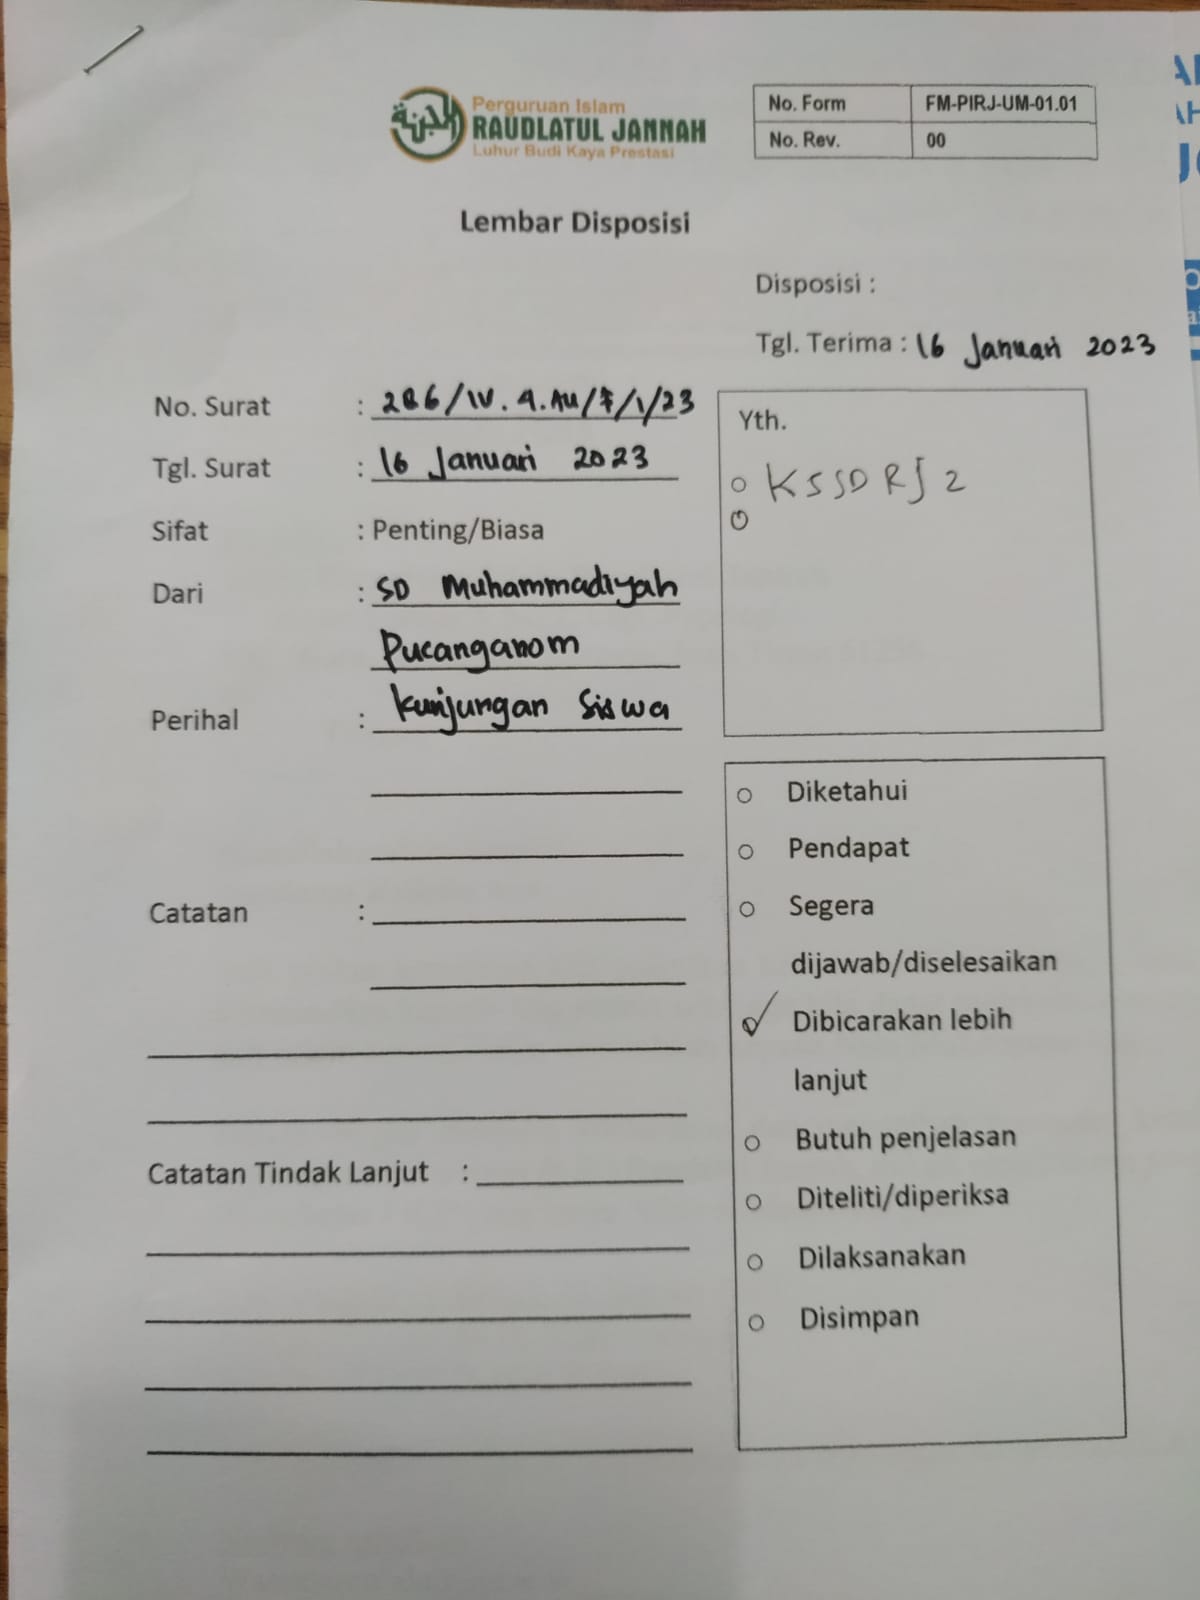 Perguruan Islam
RAUDLATUL JANNAH
Luhur Budi Kaya Prestasi
No. Form FM-PIRJ-UM-01.01
No. Rev. 00
Lembar Disposisi
Disposisi :
Tgl. Terima : 16 Januari 2023
No. Surat : 286/IV.4.AU/F/1/23
Tgl. Surat : 16 Januari 2023
Sifat : Penting/Biasa
Dari : SD Muhammadiyah
Pucanganom
Perihal : kunjungan Siswa
Catatan :
Catatan Tindak Lanjut :
Yth.
KSSDRJ 2
Diketahui
Pendapat
Segera
dijawab/diselesaikan
Dibicarakan lebih
lanjut
Butuh penjelasan
Diteliti/diperiksa
Dilaksanakan
Disimpan